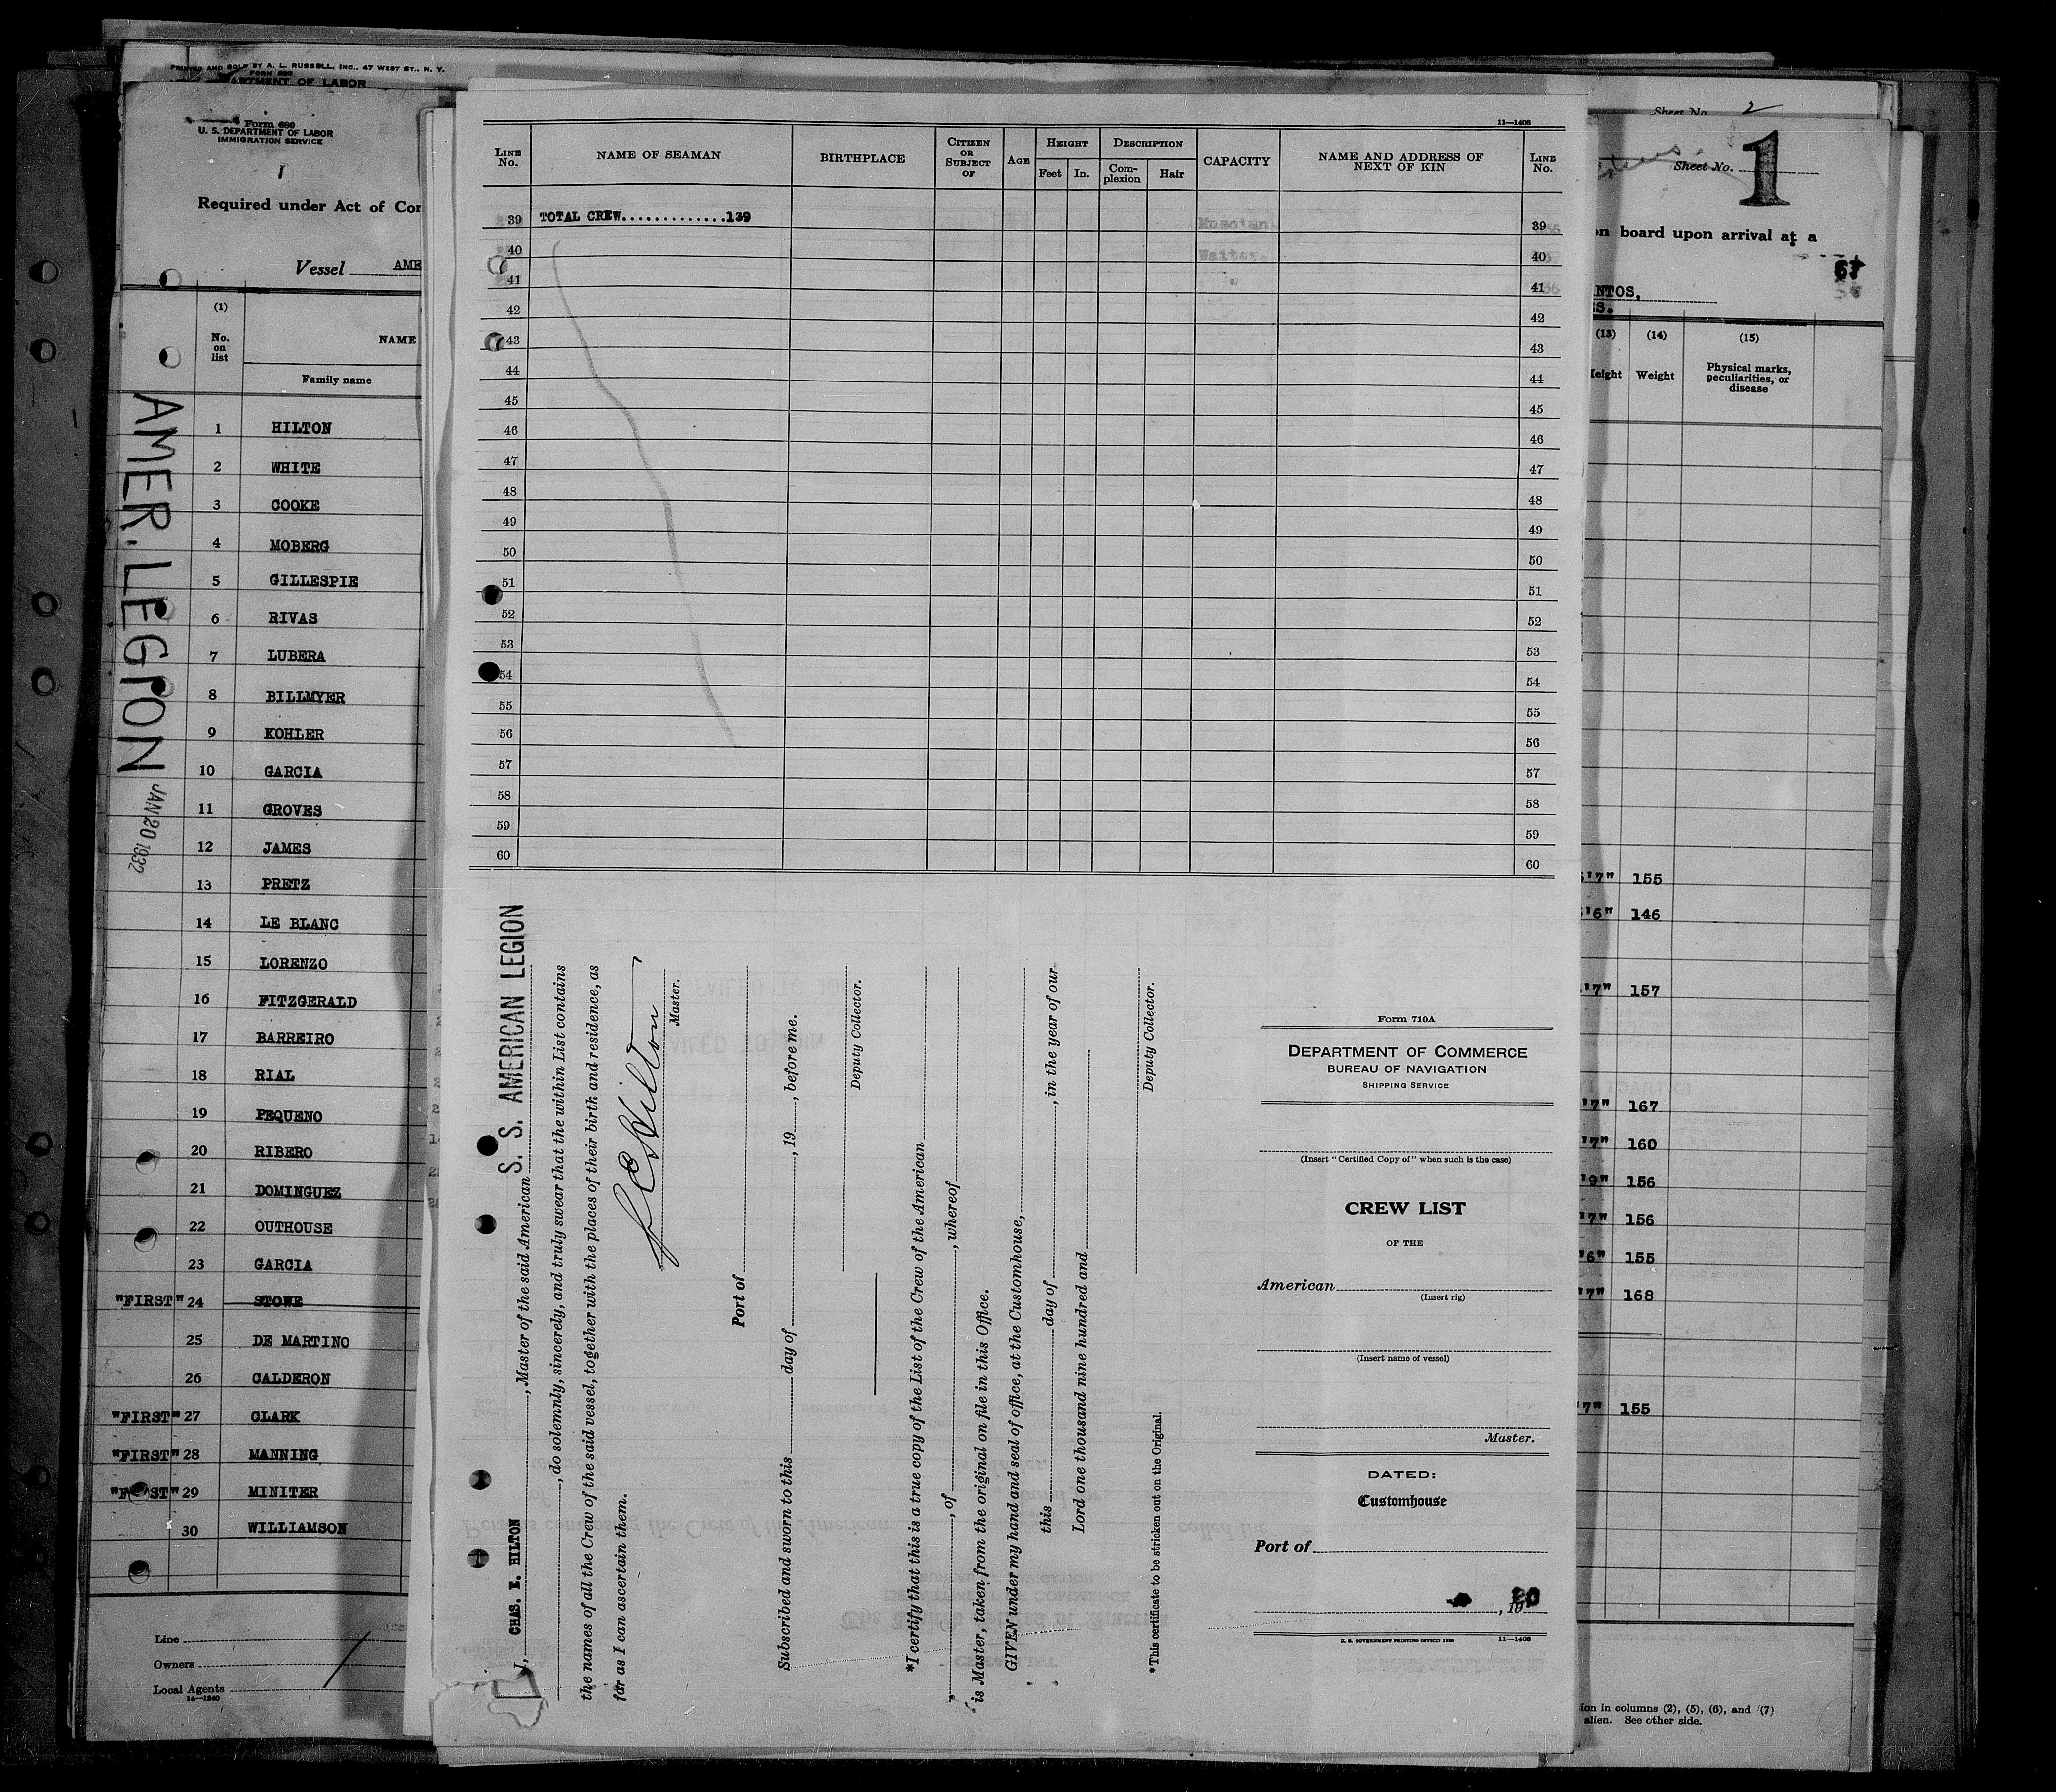 PRINTED AND SOLD BY A. L. RUSSELL, INC., 47 WEST ST., N. Y.
FORM 680
DEPARTMENT OF LABOR
Form 680
U. S. DEPARTMENT OF LABOR
IMMIGRATION SERVICE
1
Required under Act of Con
Vessel AME
(1)
No. on list
NAME
Family name
AMER. LEGION
JAN 20 1932
1 HILTON
2 WHITE
3 COOKE
4 MOBERG
5 GILLESPIE
6 RIVAS
7 LUBERA
8 BILLMYER
9 KOHLER
10 GARCIA
11 GROVES
12 JAMES
13 PRETZ
14 LE BLANC
15 LORENZO
16 FITZGERALD
17 BARREIRO
18 RIAL
19 PEQUENO
20 RIBERO
21 DOMINGUEZ
22 OUTHOUSE
23 GARCIA
"FIRST" 24 STOWE
25 DE MARTINO
26 CALDERON
"FIRST" 27 CLARK
"FIRST" 28 MANNING
"FIRST" 29 MINITER
30 WILLIAMSON
Line
Owners
Local Agents
14—1240
11—1408
LINE No. NAME OF SEAMAN BIRTHPLACE CITIZEN OR SUBJECT OF AGE HEIGHT Feet In. DESCRIPTION Complexion Hair CAPACITY NAME AND ADDRESS OF NEXT OF KIN LINE No.
39 TOTAL CREW.............139 39
40 40
41 41
42 42
43 43
44 44
45 45
46 46
47 47
48 48
49 49
50 50
51 51
52 52
53 53
54 54
55 55
56 56
57 57
58 58
59 59
60 60
I, CHAS. E. HILTON, Master of the said American S. S. AMERICAN LEGION
, do solemnly, sincerely, and truly swear that the within List contains
the names of all the Crew of the said vessel, together with the places of their birth and residence, as
far as I can ascertain them.
C E Hilton
Master.
Port of
Subscribed and sworn to this day of , 19 , before me.
Deputy Collector.
*I certify that this is a true copy of the List of the Crew of the American
* , of , whereof
is Master, taken from the original on file in this Office.
GIVEN under my hand and seal of office, at the Customhouse,
this day of , in the year of our
Lord one thousand nine hundred and
Deputy Collector.
*This certificate to be stricken out on the Original.
Form 710A
DEPARTMENT OF COMMERCE
BUREAU OF NAVIGATION
SHIPPING SERVICE
(Insert "Certified Copy of" when such is the case)
CREW LIST
OF THE
American
(Insert rig)
(Insert name of vessel)
Master.
DATED:
Customhouse
Port of
, 19
U. S. GOVERNMENT PRINTING OFFICE: 1930 11—1408
Sheet No. 2
Sheet No. 1
on board upon arrival at a
NTOS,
S.
(13) (14) (15)
Height Weight Physical marks, peculiarities, or disease
'7" 155
'6" 146
'7" 157
'7" 167
'7" 160
'9" 156
'7" 156
'6" 155
'7" 168
'7" 155
ion in columns (2), (5), (6), and (7)
alien. See other side.